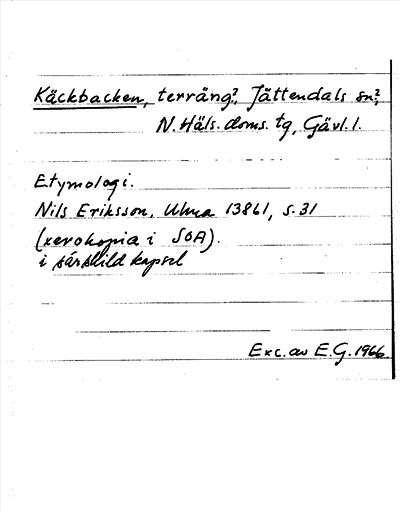 Käckbacken, terräng?, Jättendals sn?,
N. Häls. doms. tg, Gävl. l.
Etymologi.
Nils Eriksson, Ulma 13861, s. 31
(xerokopia i SOA).
i särskild kapsel
Exc. av E.G. 1966.